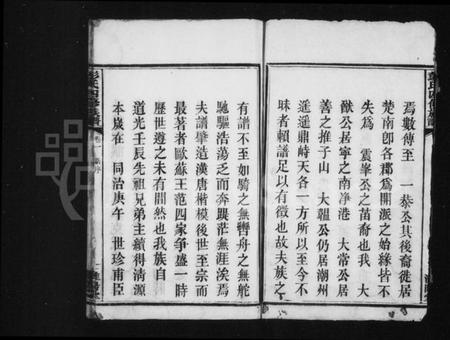 焉數傳至 一恭公其後裔徙居
楚南卽各郡爲開派之始緣皆不
失爲 震峯公之苗裔也我 大
猷公居寧之南淨港 大常公居
善之推子山 大韞公仍居潮州
遥遥鼎峙天各一方所以至今不
昧者賴譜足以有徵也故夫族之
有譜不至如騎之無轡舟之無舵
馳驅浩蕩乏而奔蹊茫無涯涘焉
夫譜肇造漢唐楷模後世至宗而
最著者歐蘇王范四家爭盛一時
歷世遵之未有間然也我族自
道光壬辰先祖兄弟主績得清源
本歲在 同治庚午 世珍甫臣